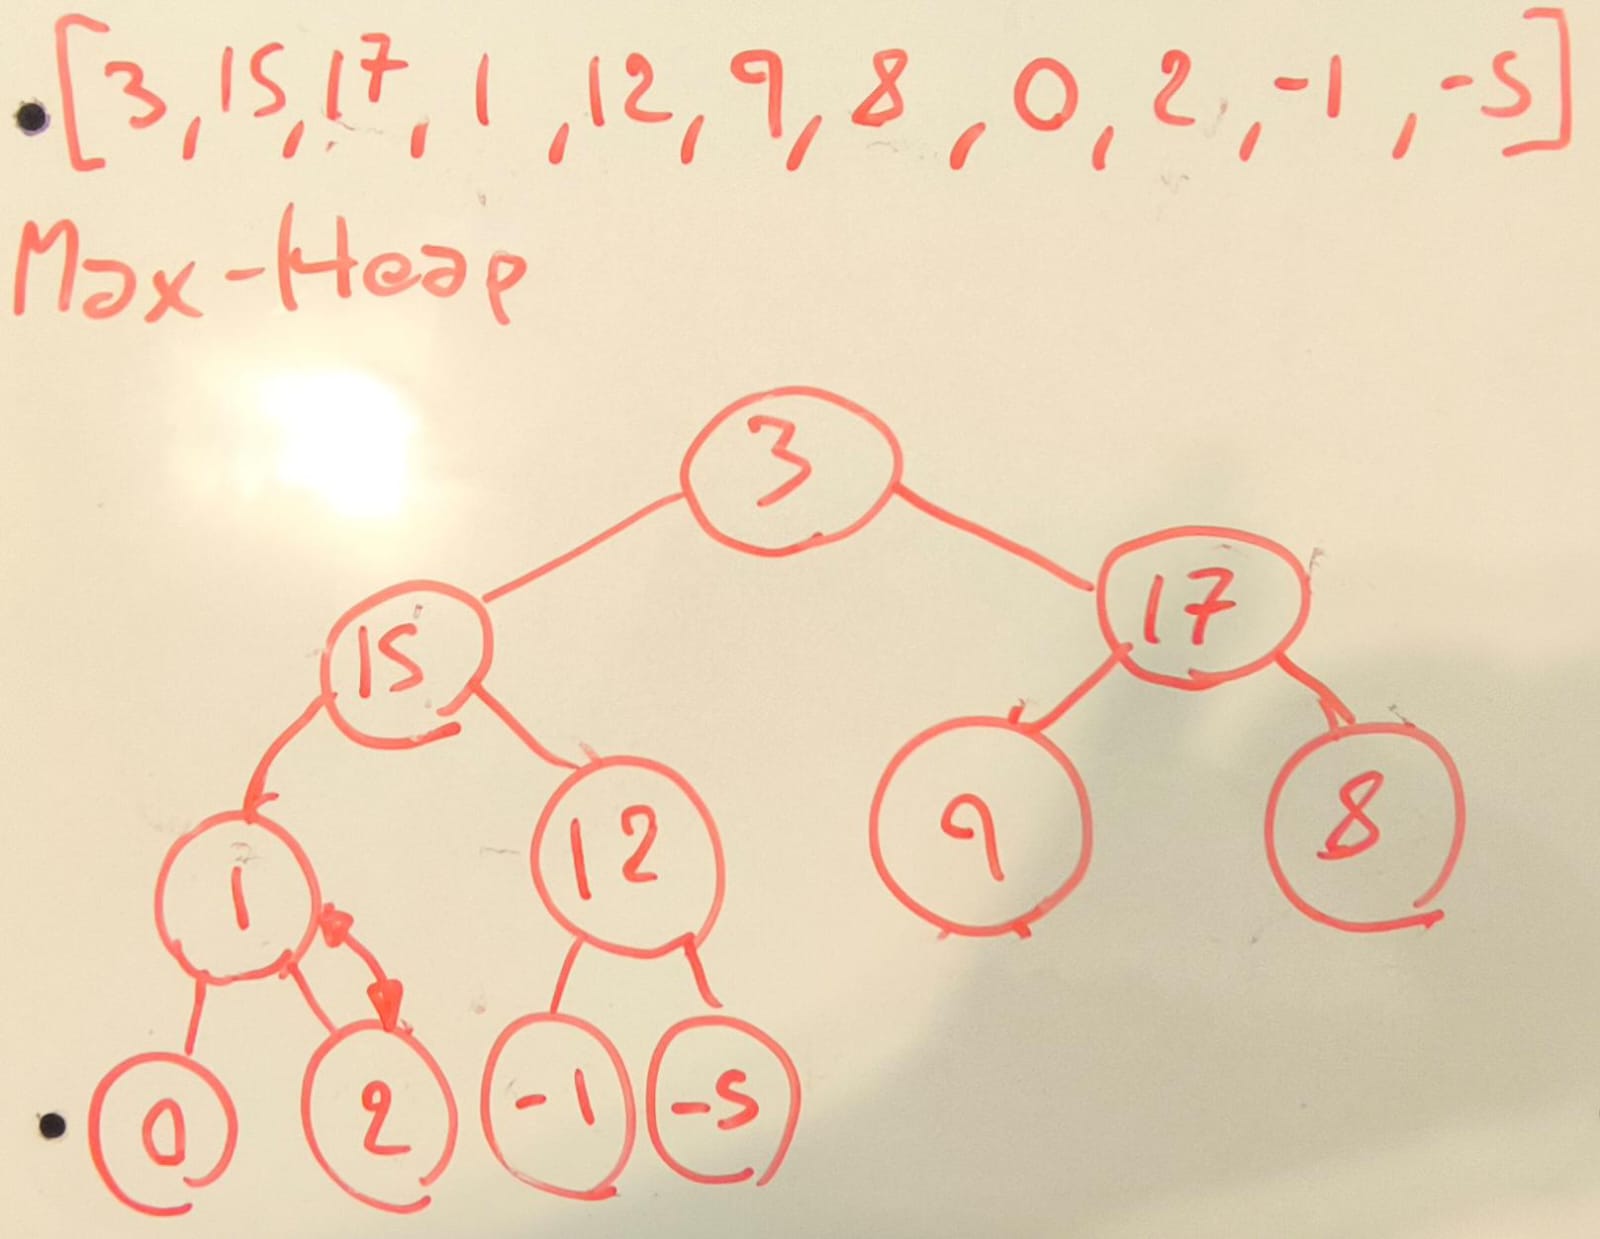 [3, 15, 17, 1, 12, 9, 8, 0, 2, -1, -5]
Max-Heap
3
15 17
1 12 9 8
0 2 -1 -5